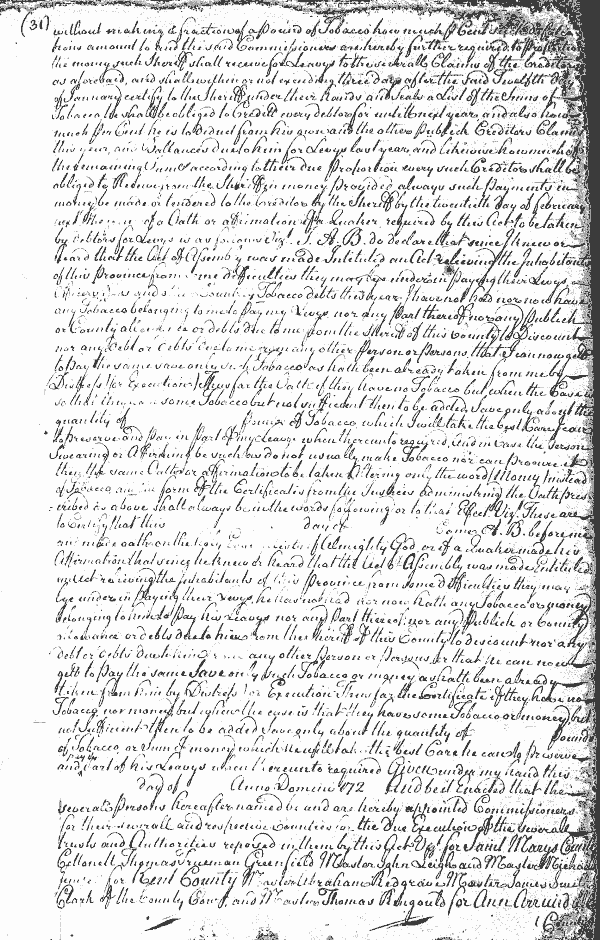 (31) without making a fraction of a Pound of Tobacco how much p Cent
hous amount to and the said Commissioners are hereby further required to
the money such Sheriff shall receive for Leavys to the severall Claims of the Creditors
as aforesaid, and shall within or not exceeding three days after the Said Twelfth day
of January certify to the Sheriff under their hands and Seals a List of the Sums of
Tobacco he shall be obliged to Creditt every debtor for untill next year and also how
much per Cent he is to Deduct from his own and the other Publick Creditors Claims
this year, and Ballances due to him for Levys last year, and likewise how much of
the remaining Sums according to their due Proportion every such Creditor shall be
obliged to Receive from the Sheriff in money provided always such Payments in
money be made or tendered to the Creditor by the Sheriff by the twentieth Day of february
next The of a Oath or affirmation if a Quaker required by this Act to be taken
by debtors for Levys is as follows Vizt. I. A. B. do declare that since I knew or
heard that the Act of Assembly was made Intituled an Act relieving the Inhabitants
of this Province from some difficulties they may lye under in Paying their Levys
and Tobacco debts this year, I have not had nor now have
any Tobacco belonging to me to Pay my Levys nor any Part thereof nor any Publick
or County allowance or debts due to me from the Sheriff of this County to Discount
nor any Debt or Debts due to me from any other Person or Persons that I can now gett
to Pay the same save only such Tobacco as hath been already taken from me by
Distress or Execution Thus far the Oath if they have no Tobacco but when the Case is
so that they have some Tobacco but not sufficient then to be added Save only about the
quantity of pounds of Tobacco, which I will take the best Care I can
to Preserve and Pay in Part of my Leavys when thereunto required, And in case the Person
Swearing or Affirming be such as do not usually make Tobacco nor can procure it
then the same Oath or affirmation to be taken Altering only the word Money Instead
of Tobacco and the form of the Certificates from the Justices administring the Oath pres
=cribed as above shall always be in the words following or to that Effect Vizt. These are
to Certify that this day of Came A. B. before me
and made oath on the holy Evangelists of Almighty God, or if a Quaker made his
Affirmation that since he knew or heard that the Act of Assembly was made Entituled
an Act relieving the Inhabitants of this Province from some Difficulties they may
lye under in Paying their Levys, he has not had nor now hath any Tobacco or money
belonging to him to Pay his Leavys nor any Part thereof, nor any Publick or County
allowance or debts due to him from the Sheriff of this County to discount nor any
debt or debts due to him from any other Person or Persons, or that he can now
gett to Pay the same Save only such Tobacco or money as hath been already
taken from him by Distress or Execution Thus far the Certificate if they have no
Tobacco, nor money, but when the case is that they have some Tobacco or money but
not Sufficient then to be added Save only about the quantity of pounds
of Tobacco, or Sum of money which he will take the best Care he can to Preserve
and pay in Part of his Leavys when thereunto required Given under my hand this
day of Anno Domini 172 And be it Enacted that the
severall Persons hereafter named be and are hereby appointed Commissioners
for their severall and respective Counties for the Due Execution of the severall
trusts and Authorities reposed in them by this Act Vizt. for Saint Marys County
Collonell Thomas Trueman Greenfield Mastor John Leigh and Mastor Michael
for Kent County Mastor Abraham Redgrave Mastor James Smith
Clark of the County Court, and Mastor Thomas Ringould for Ann Arrundall
County